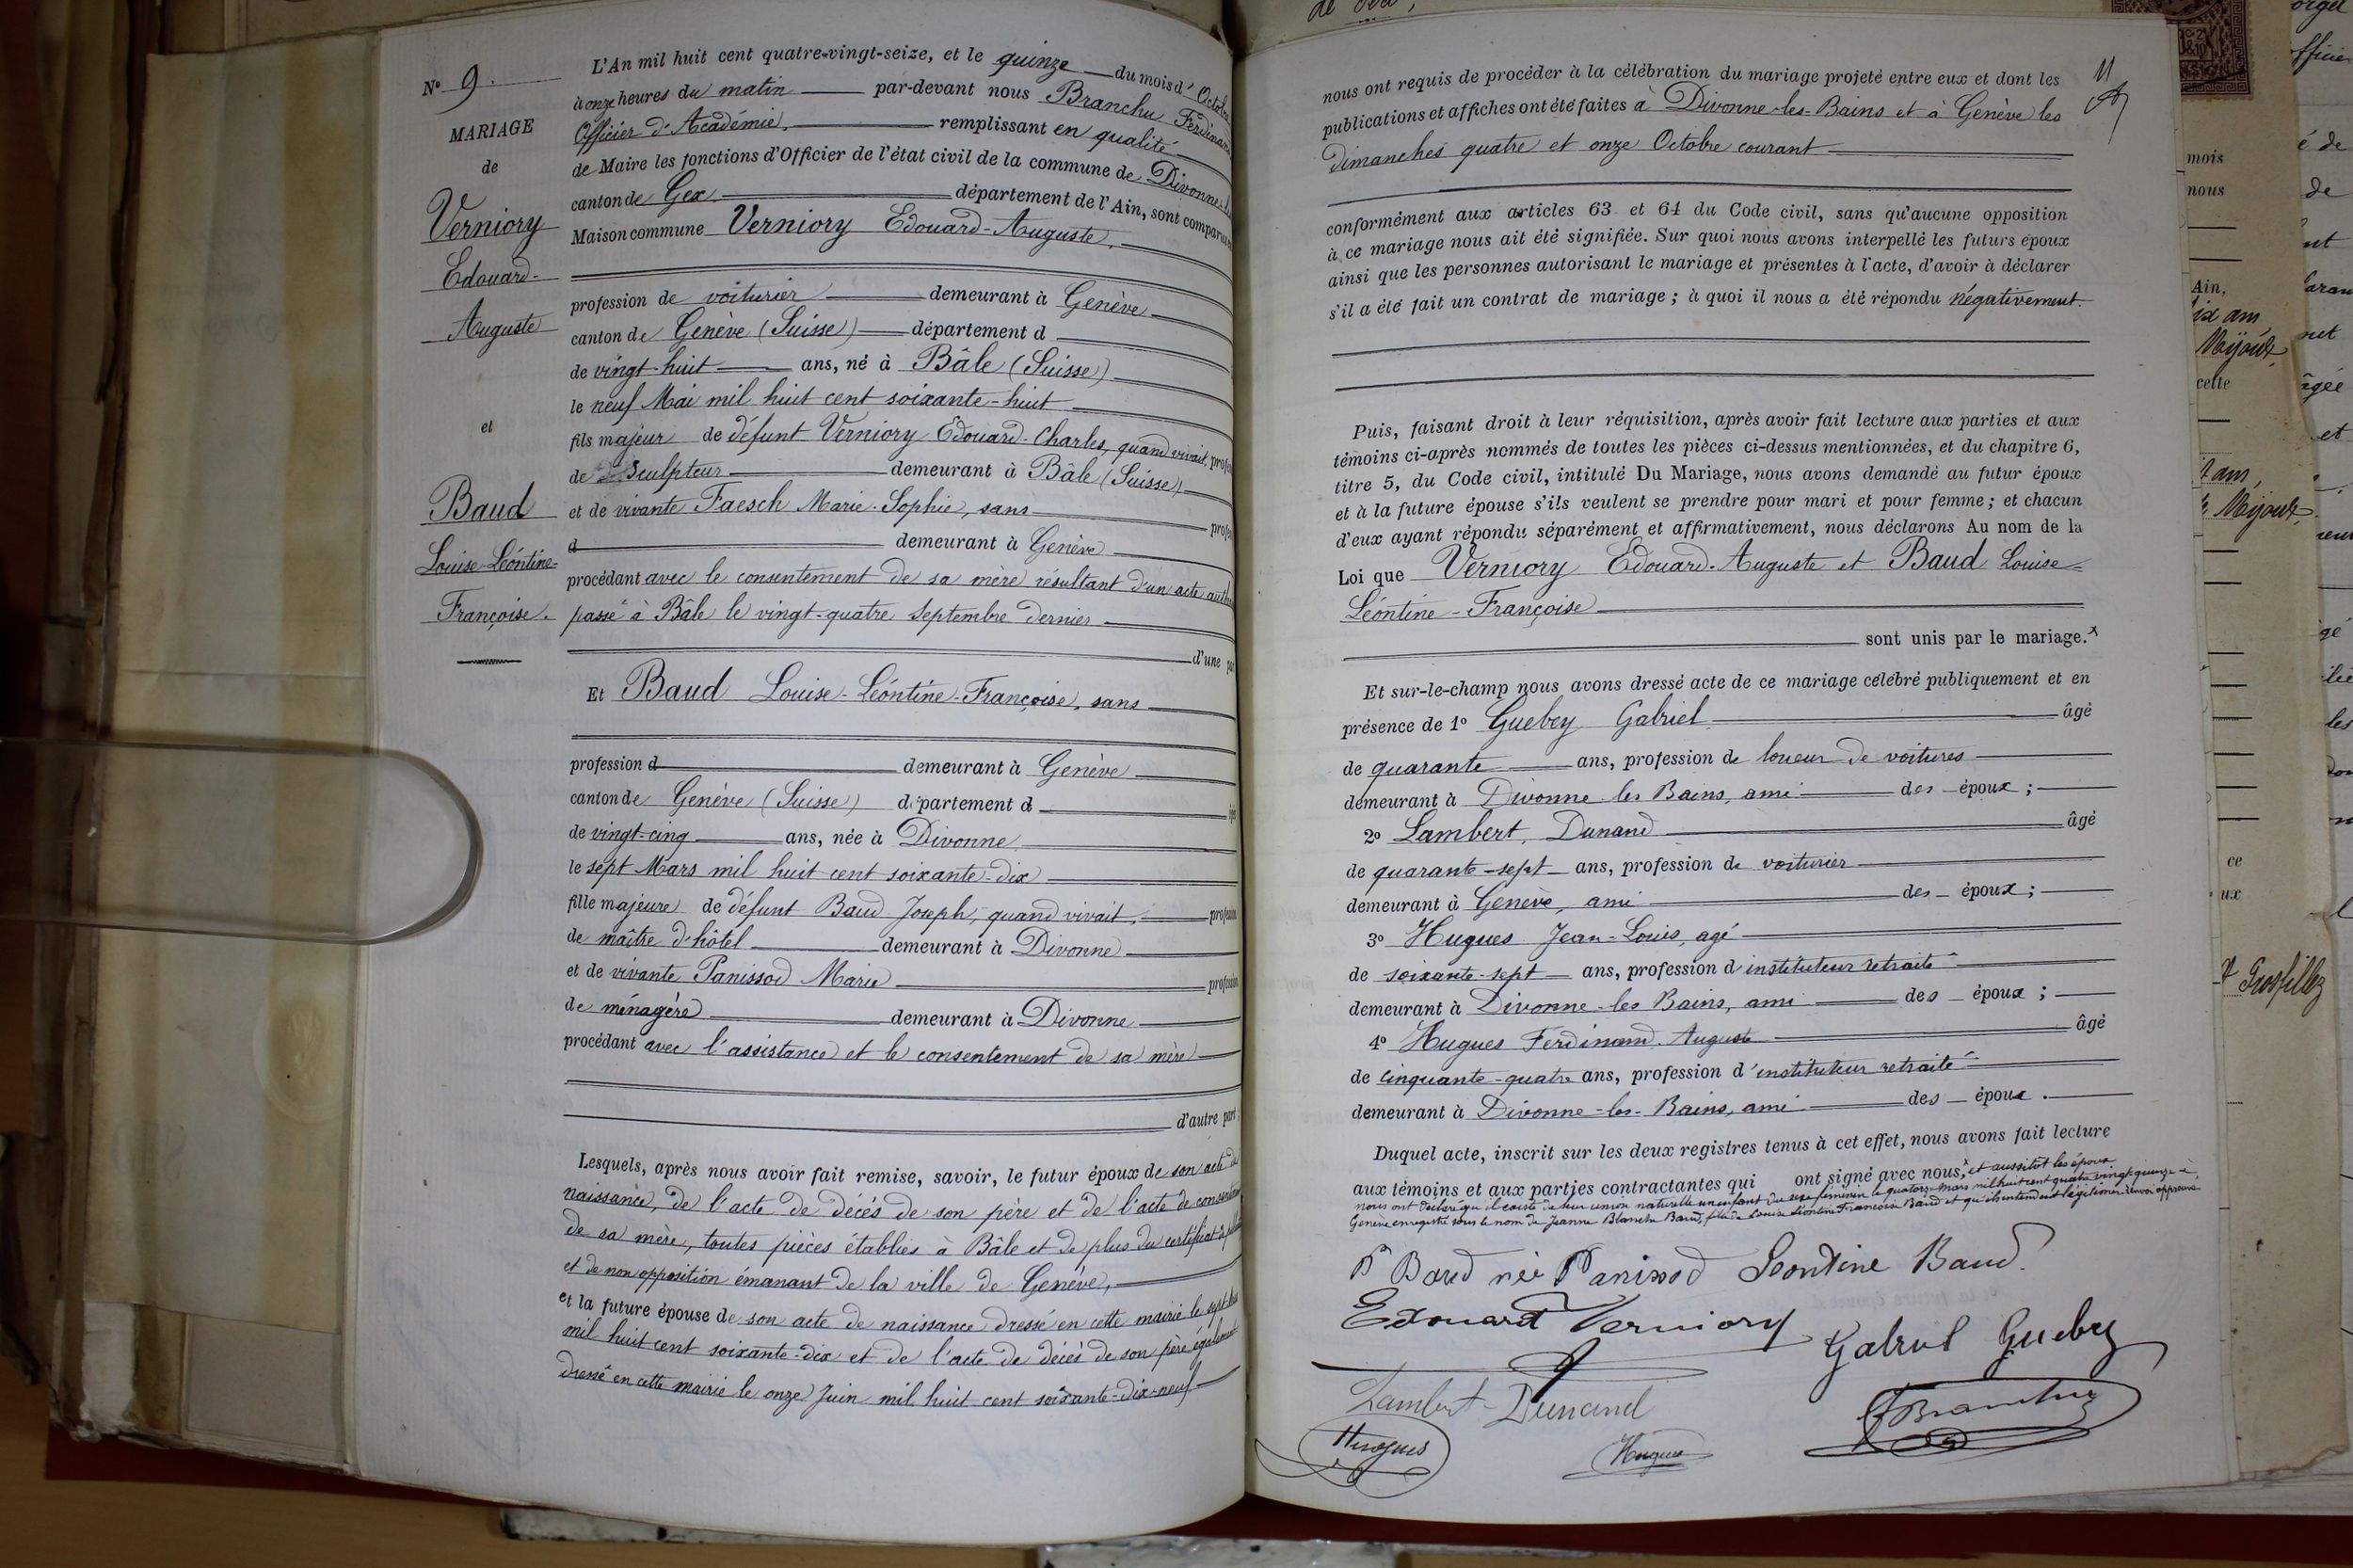 N° 9.
MARIAGE
de
Verniory
Edouard-
Auguste
et
Baud
Louise-Léontine-
Françoise.
L'An mil huit cent quatre-vingt-seize, et le quinze du mois d'Octobre
à onze heures du matin par-devant nous Branchu Ferdinand
Officier d'Académie, remplissant en qualité
de Maire les fonctions d'Officier de l'état civil de la commune de Divonne-les
canton de Gex département de l'Ain, sont comparus
Maison commune Verniory Edouard-Auguste,
profession de voiturier demeurant à Genève
canton de Genève (Suisse) département d
de vingt-huit ans, né à Bâle (Suisse)
le neuf Mai mil huit cent soixante-huit
fils majeur de défunt Verniory Edouard-Charles, quand vivait, profes
de Sculpteur demeurant à Bâle (Suisse)
et de vivante Faesch Marie-Sophie, sans profes
d demeurant à Genève
procédant avec le consentement de sa mère résultant d'un acte
passé à Bâle le vingt-quatre Septembre dernier
d'une par
Et Baud Louise-Léontine-Françoise, sans
profession d demeurant à Genève
canton de Genève (Suisse) département d
de vingt-cinq ans, née à Divonne
le sept Mars mil huit cent soixante-dix
fille majeure de défunt Baud Joseph, quand vivait, profession
de maître d'hôtel demeurant à Divonne
et de vivante Panissod Marie profession
de ménagère demeurant à Divonne
procédant avec l'assistance et le consentement de sa mère
d'autre part;
Lesquels, après nous avoir fait remise, savoir, le futur époux de son acte de
naissance, de l'acte de décès de son père et de l'acte de
de sa mère, toutes pièces établies à Bâle et de plus du certificat de
et de non opposition émanant de la ville de Genève,
et la future épouse de son acte de naissance dressé en cette mairie le sept Mars
mil huit cent soixante-dix et de l'acte de décès de son père également
dressé en cette mairie le onze Juin mil huit cent soixante-dix-neuf
11
nous ont requis de procéder à la célébration du mariage projeté entre eux et dont les
publications et affiches ont été faites à Divonne-les-Bains et à Genève les
dimanches quatre et onze Octobre courant
conformément aux articles 63 et 64 du Code civil, sans qu'aucune opposition
à ce mariage nous ait été signifiée. Sur quoi nous avons interpellé les futurs époux
ainsi que les personnes autorisant le mariage et présentes à l'acte, d'avoir à déclarer
s'il a été fait un contrat de mariage; à quoi il nous a été répondu négativement.
Puis, faisant droit à leur réquisition, après avoir fait lecture aux parties et aux
témoins ci-après nommés de toutes les pièces ci-dessus mentionnées, et du chapitre 6,
titre 5, du Code civil, intitulé Du Mariage, nous avons demandé au futur époux
et à la future épouse s'ils veulent se prendre pour mari et pour femme; et chacun
d'eux ayant répondu séparément et affirmativement, nous déclarons Au nom de la
Loi que Verniory Edouard-Auguste et Baud Louise-
Léontine-Françoise
sont unis par le mariage.x
Et sur-le-champ nous avons dressé acte de ce mariage célébré publiquement et en
présence de 1° Guebey Gabriel âgé
de quarante ans, profession de loueur de voitures
demeurant à Divonne-les Bains, ami des époux;
2° Lambert, Dunand âgé
de quarante-sept ans, profession de voiturier
demeurant à Genève, ami des époux;
3° Hugues Jean-Louis, agé
de soixante-sept ans, profession d'instituteur retraité
demeurant à Divonne-les Bains, ami des époux;
4° Hugues Ferdinand-Auguste âgé
de cinquante-quatre ans, profession d'instituteur retraité
demeurant à Divonne-les-Bains, ami des époux.
Duquel acte, inscrit sur les deux registres tenus à cet effet, nous avons fait lecture
aux témoins et aux parties contractantes qui ont signé avec nous, x et aussitôt les époux
nous ont déclaré qu'il existe de leur union naturelle un enfant du sexe féminin le quatorze Mars mil huit cent quatre vingt quinze à
Genève enregistré sous le nom de Jeanne Blanche Baud, fille de Louise Léontine Françoise Baud et qu'ils entendent légitimer. Renvoi approuvé
Baud née Panissod Leontine Baud.
Edouard Verniory Gabriel Guebey
Lambert-Dunand
Hugues Hugues F Branchu
mois
nous
Ain,
cette
Mijoux
ce
ux